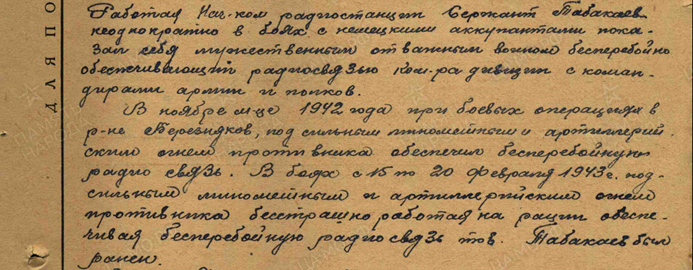 Работая Нач-ком радиостанции Сержант Табакаев
неоднократно в боях с немецкими аккупантами пока-
зал себя мужественным отважным воином бесперебойно
обеспечивающий радиосвязью ком-ра дивизии с коман-
дирами армии и полков.
В ноябре м-це 1942 года при боевых операциях в
р-не Березняков, под сильным минометным и артиллерий
ским огнем противника обеспечил бесперебойную
радио связь. В боях с 15 по 20 февраля 1943 г. под-
сильным минометным и артиллерийским огнем
противника бесстрашно работая на рации обеспе-
чивая бесперебойную радиосвязь тов. Табакаев был
ранен.